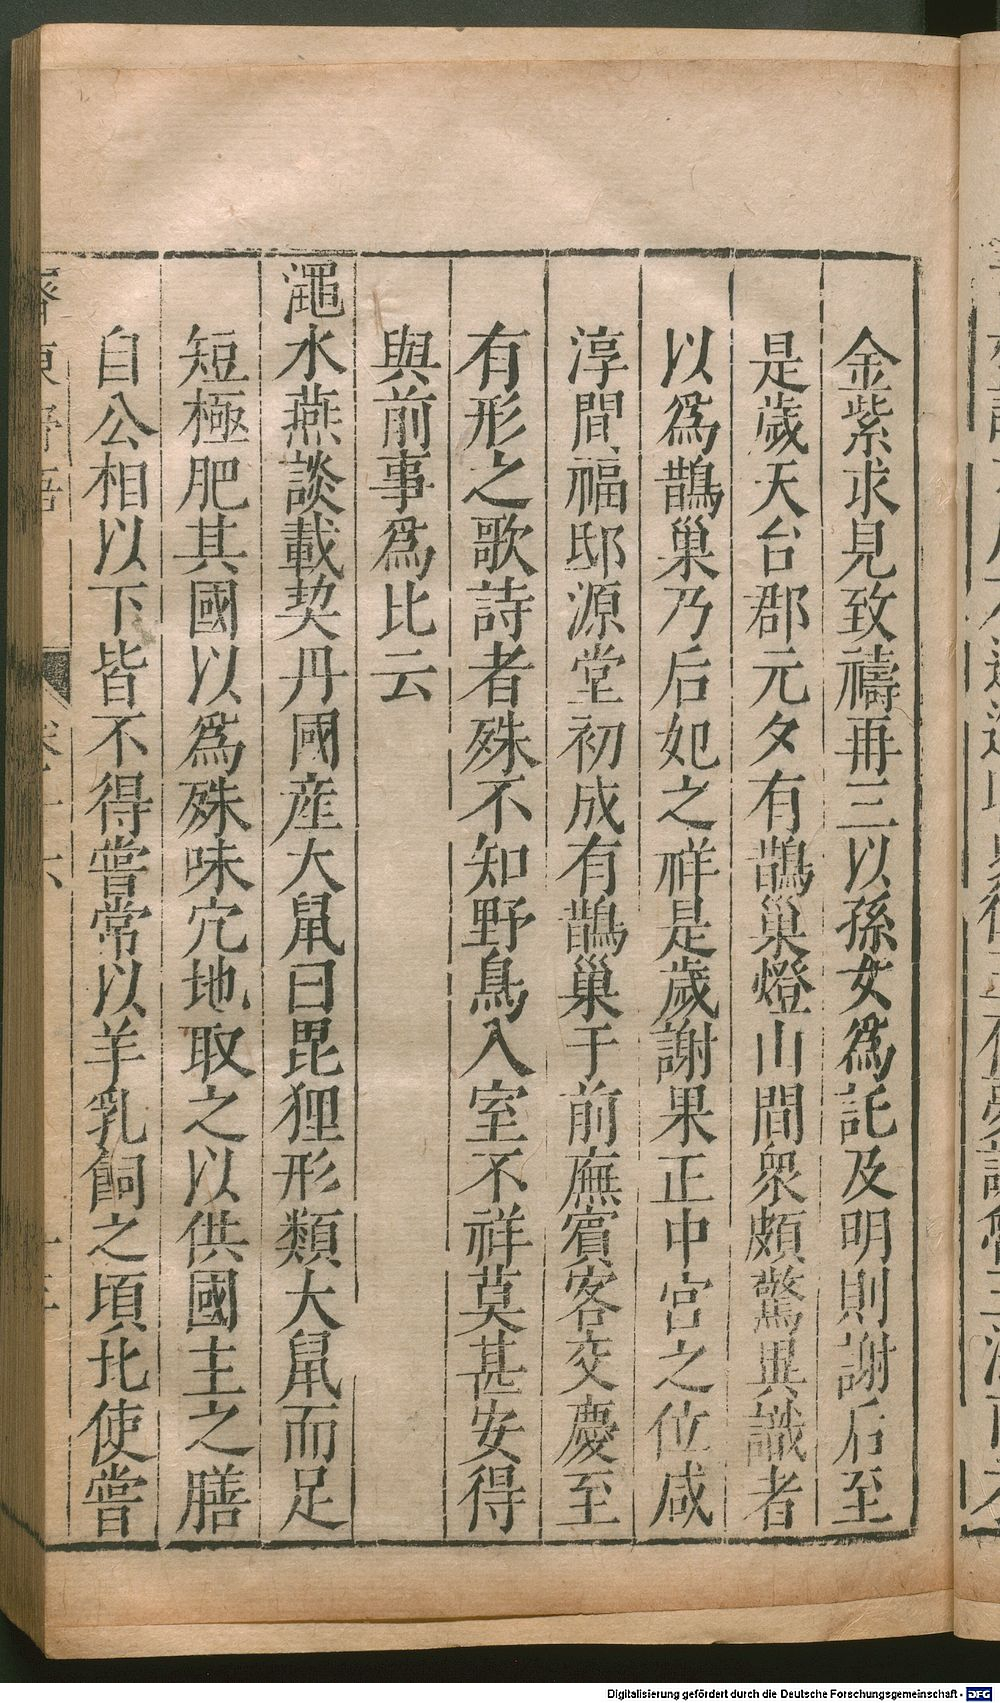 金紫求見致禱再三以孫女爲託及明則謝后至
是歲天台郡元夕有鵲巢燈山間衆頗驚異識者
以爲鵲巢乃后妃之祥是歲謝果正中宮之位咸
淳間福邸源堂初成有鵲巢于前廡賓客交慶至
有形之歌詩者殊不知野鳥入室不祥莫甚安得
與前事爲比云
澠水燕談載契丹國産大鼠曰毘狸形類大鼠而足
短極肥其國以爲殊味穴地取之以供國主之膳
自公相以下皆不得嘗常以羊乳飼之頃北使嘗
Digitalisierung gefördert durch die Deutsche Forschungsgemeinschaft - DFG